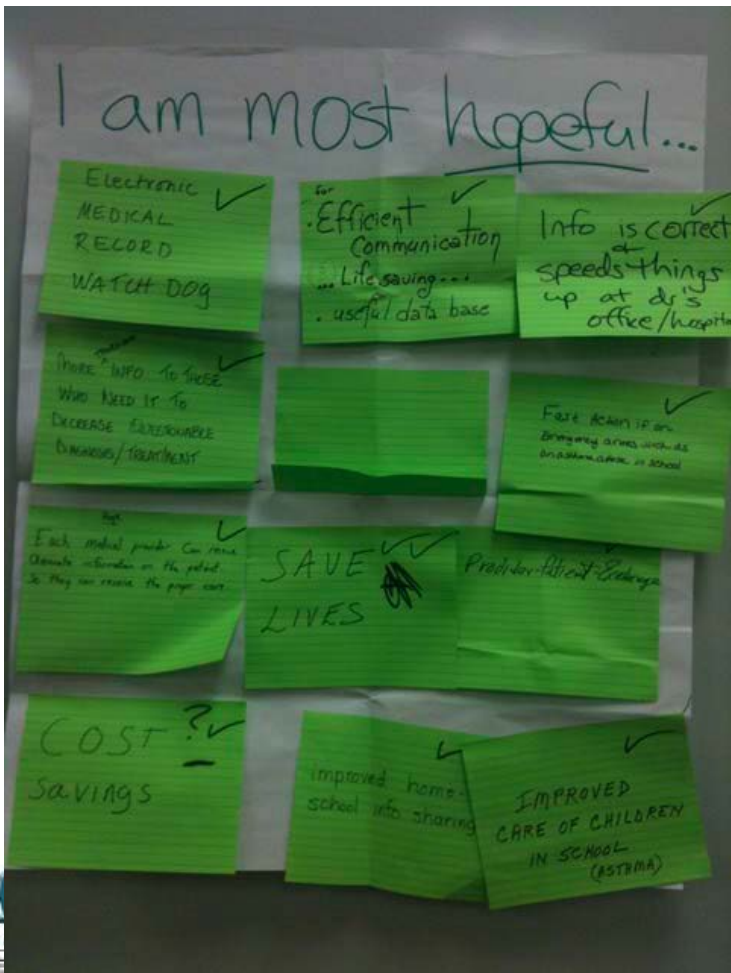 I am most hopeful...
Electronic
MEDICAL
RECORD
WATCH DOG
For
. Efficient
Communication
... Life saving ...
. useful data base
Info is correct
&
speeds things
up at dr's
office/hospita
MORE INFO TO THOSE
WHO NEED IT TO
DECREASE QUESTIONABLE
DIAGNOSIS/TREATMENT
Fast Action if an
Emergency arises such as
in school
Each medical provider can
information on the patient
so they can receive the proper care.
SAVE
LIVES
Provider-Patient-Exchange
COST ?
Savings
improved home-
school info sharing
IMPROVED
CARE OF CHILDREN
IN SCHOOL
(ASTHMA)